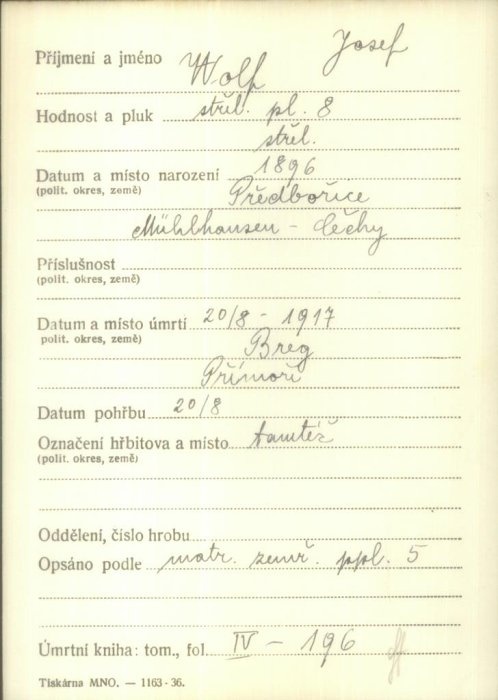 Příjmení a jméno Wolf Josef
Hodnost a pluk střel. pl. 8
střel.
Datum a místo narození 1896
(polit. okres, země) Předbořice
Mühlhausen - Čechy
Příslušnost
(polit. okres, země)
Datum a místo úmrtí 20/8 - 1917
polit. okres, země) Breg
Přímoří
Datum pohřbu 20/8
Označení hřbitova a místo tamtéž
(polit. okres, země)
Oddělení, číslo hrobu
Opsáno podle matr. zemř. ppl. 5
Úmrtní kniha: tom., fol. IV - 196
Tiskárna MNO. — 1163-36.